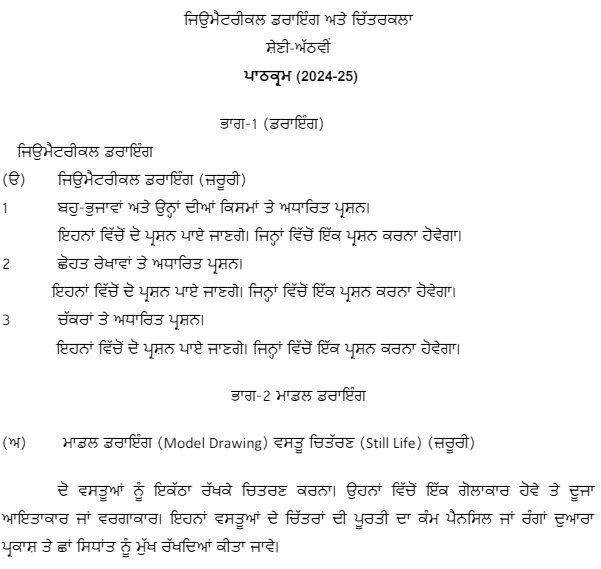 ਜਿਉਮੈਟਰੀਕਲ ਡਰਾਇੰਗ ਅਤੇ ਚਿੱਤਰਕਲਾ
ਸ਼ੇਣੀ-ਅੱਠਵੀਂ
ਪਾਠਕ੍ਰਮ (2024-25)
ਭਾਗ-1 (ਡਰਾਇੰਗ)
ਜਿਉਮੈਟਰੀਕਲ ਡਰਾਇੰਗ
(ੳ) ਜਿਉਮੈਟਰੀਕਲ ਡਰਾਇੰਗ (ਜ਼ਰੂਰੀ)
1 ਬਹੁ-ਭੁਜਾਵਾਂ ਅਤੇ ਉਨ੍ਹਾਂ ਦੀਆਂ ਕਿਸਮਾਂ ਤੇ ਅਧਾਰਿਤ ਪ੍ਰਸ਼ਨ।
ਇਹਨਾਂ ਵਿੱਚੋਂ ਦੋ ਪ੍ਰਸ਼ਨ ਪਾਏ ਜਾਣਗੇ। ਜਿਨ੍ਹਾਂ ਵਿੱਚੋਂ ਇੱਕ ਪ੍ਰਸ਼ਨ ਕਰਨਾ ਹੋਵੇਗਾ।
2 ਛੋਹਤ ਰੇਖਾਵਾਂ ਤੇ ਅਧਾਰਿਤ ਪ੍ਰਸ਼ਨ।
ਇਹਨਾਂ ਵਿੱਚੋਂ ਦੋ ਪ੍ਰਸ਼ਨ ਪਾਏ ਜਾਣਗੇ। ਜਿਨ੍ਹਾਂ ਵਿੱਚੋਂ ਇੱਕ ਪ੍ਰਸ਼ਨ ਕਰਨਾ ਹੋਵੇਗਾ।
3 ਚੱਕਰਾਂ ਤੇ ਅਧਾਰਿਤ ਪ੍ਰਸ਼ਨ।
ਇਹਨਾਂ ਵਿੱਚੋਂ ਦੋ ਪ੍ਰਸ਼ਨ ਪਾਏ ਜਾਣਗੇ। ਜਿਨ੍ਹਾਂ ਵਿੱਚੋਂ ਇੱਕ ਪ੍ਰਸ਼ਨ ਕਰਨਾ ਹੋਵੇਗਾ।
ਭਾਗ-2 ਮਾਡਲ ਡਰਾਇੰਗ
(ਅ) ਮਾਡਲ ਡਰਾਇੰਗ (Model Drawing) ਵਸਤੂ ਚਿਤੱਰਣ (Still Life) (ਜ਼ਰੂਰੀ)
ਦੋ ਵਸਤੂਆਂ ਨੂੰ ਇਕੱਠਾ ਰੱਖਕੇ ਚਿਤਰਣ ਕਰਨਾ। ਉਹਨਾਂ ਵਿੱਚੋਂ ਇੱਕ ਗੋਲਾਕਾਰ ਹੋਵੇ ਤੇ ਦੂਜਾ
ਆਇਤਾਕਾਰ ਜਾਂ ਵਰਗਾਕਾਰ। ਇਹਨਾਂ ਵਸਤੂਆਂ ਦੇ ਚਿੱਤਰਾਂ ਦੀ ਪੂਰਤੀ ਦਾ ਕੰਮ ਪੈਨਸਿਲ ਜਾਂ ਰੰਗਾਂ ਦੁਆਰਾ
ਪ੍ਰਕਾਸ਼ ਤੇ ਛਾਂ ਸਿਧਾਂਤ ਨੂੰ ਮੁੱਖ ਰੱਖਦਿਆਂ ਕੀਤਾ ਜਾਵੇ।